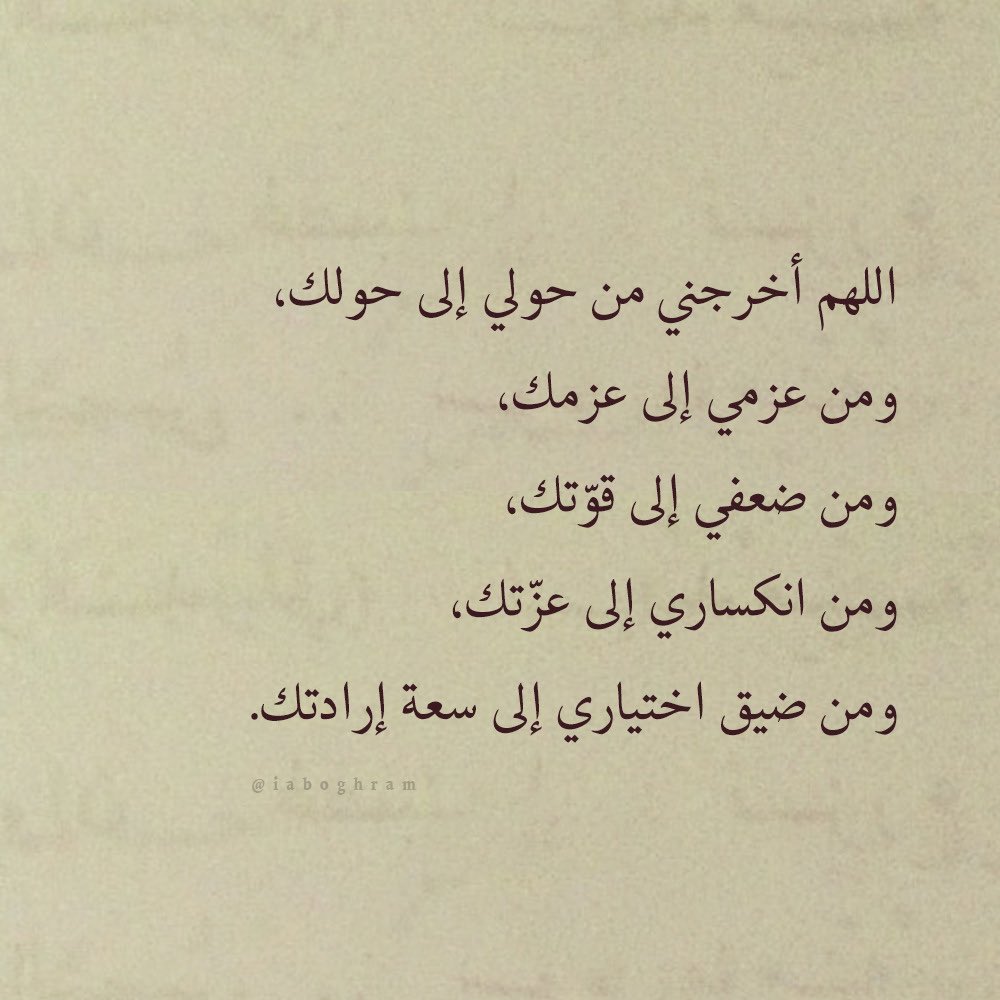 اللهم أخرجني من حولي إلى حولك،
ومن عزمي إلى عزمك،
ومن ضعفي إلى قوّتك،
ومن انكساري إلى عزّتك،
ومن ضيق اختياري إلى سعة إرادتك.
@iaboghram